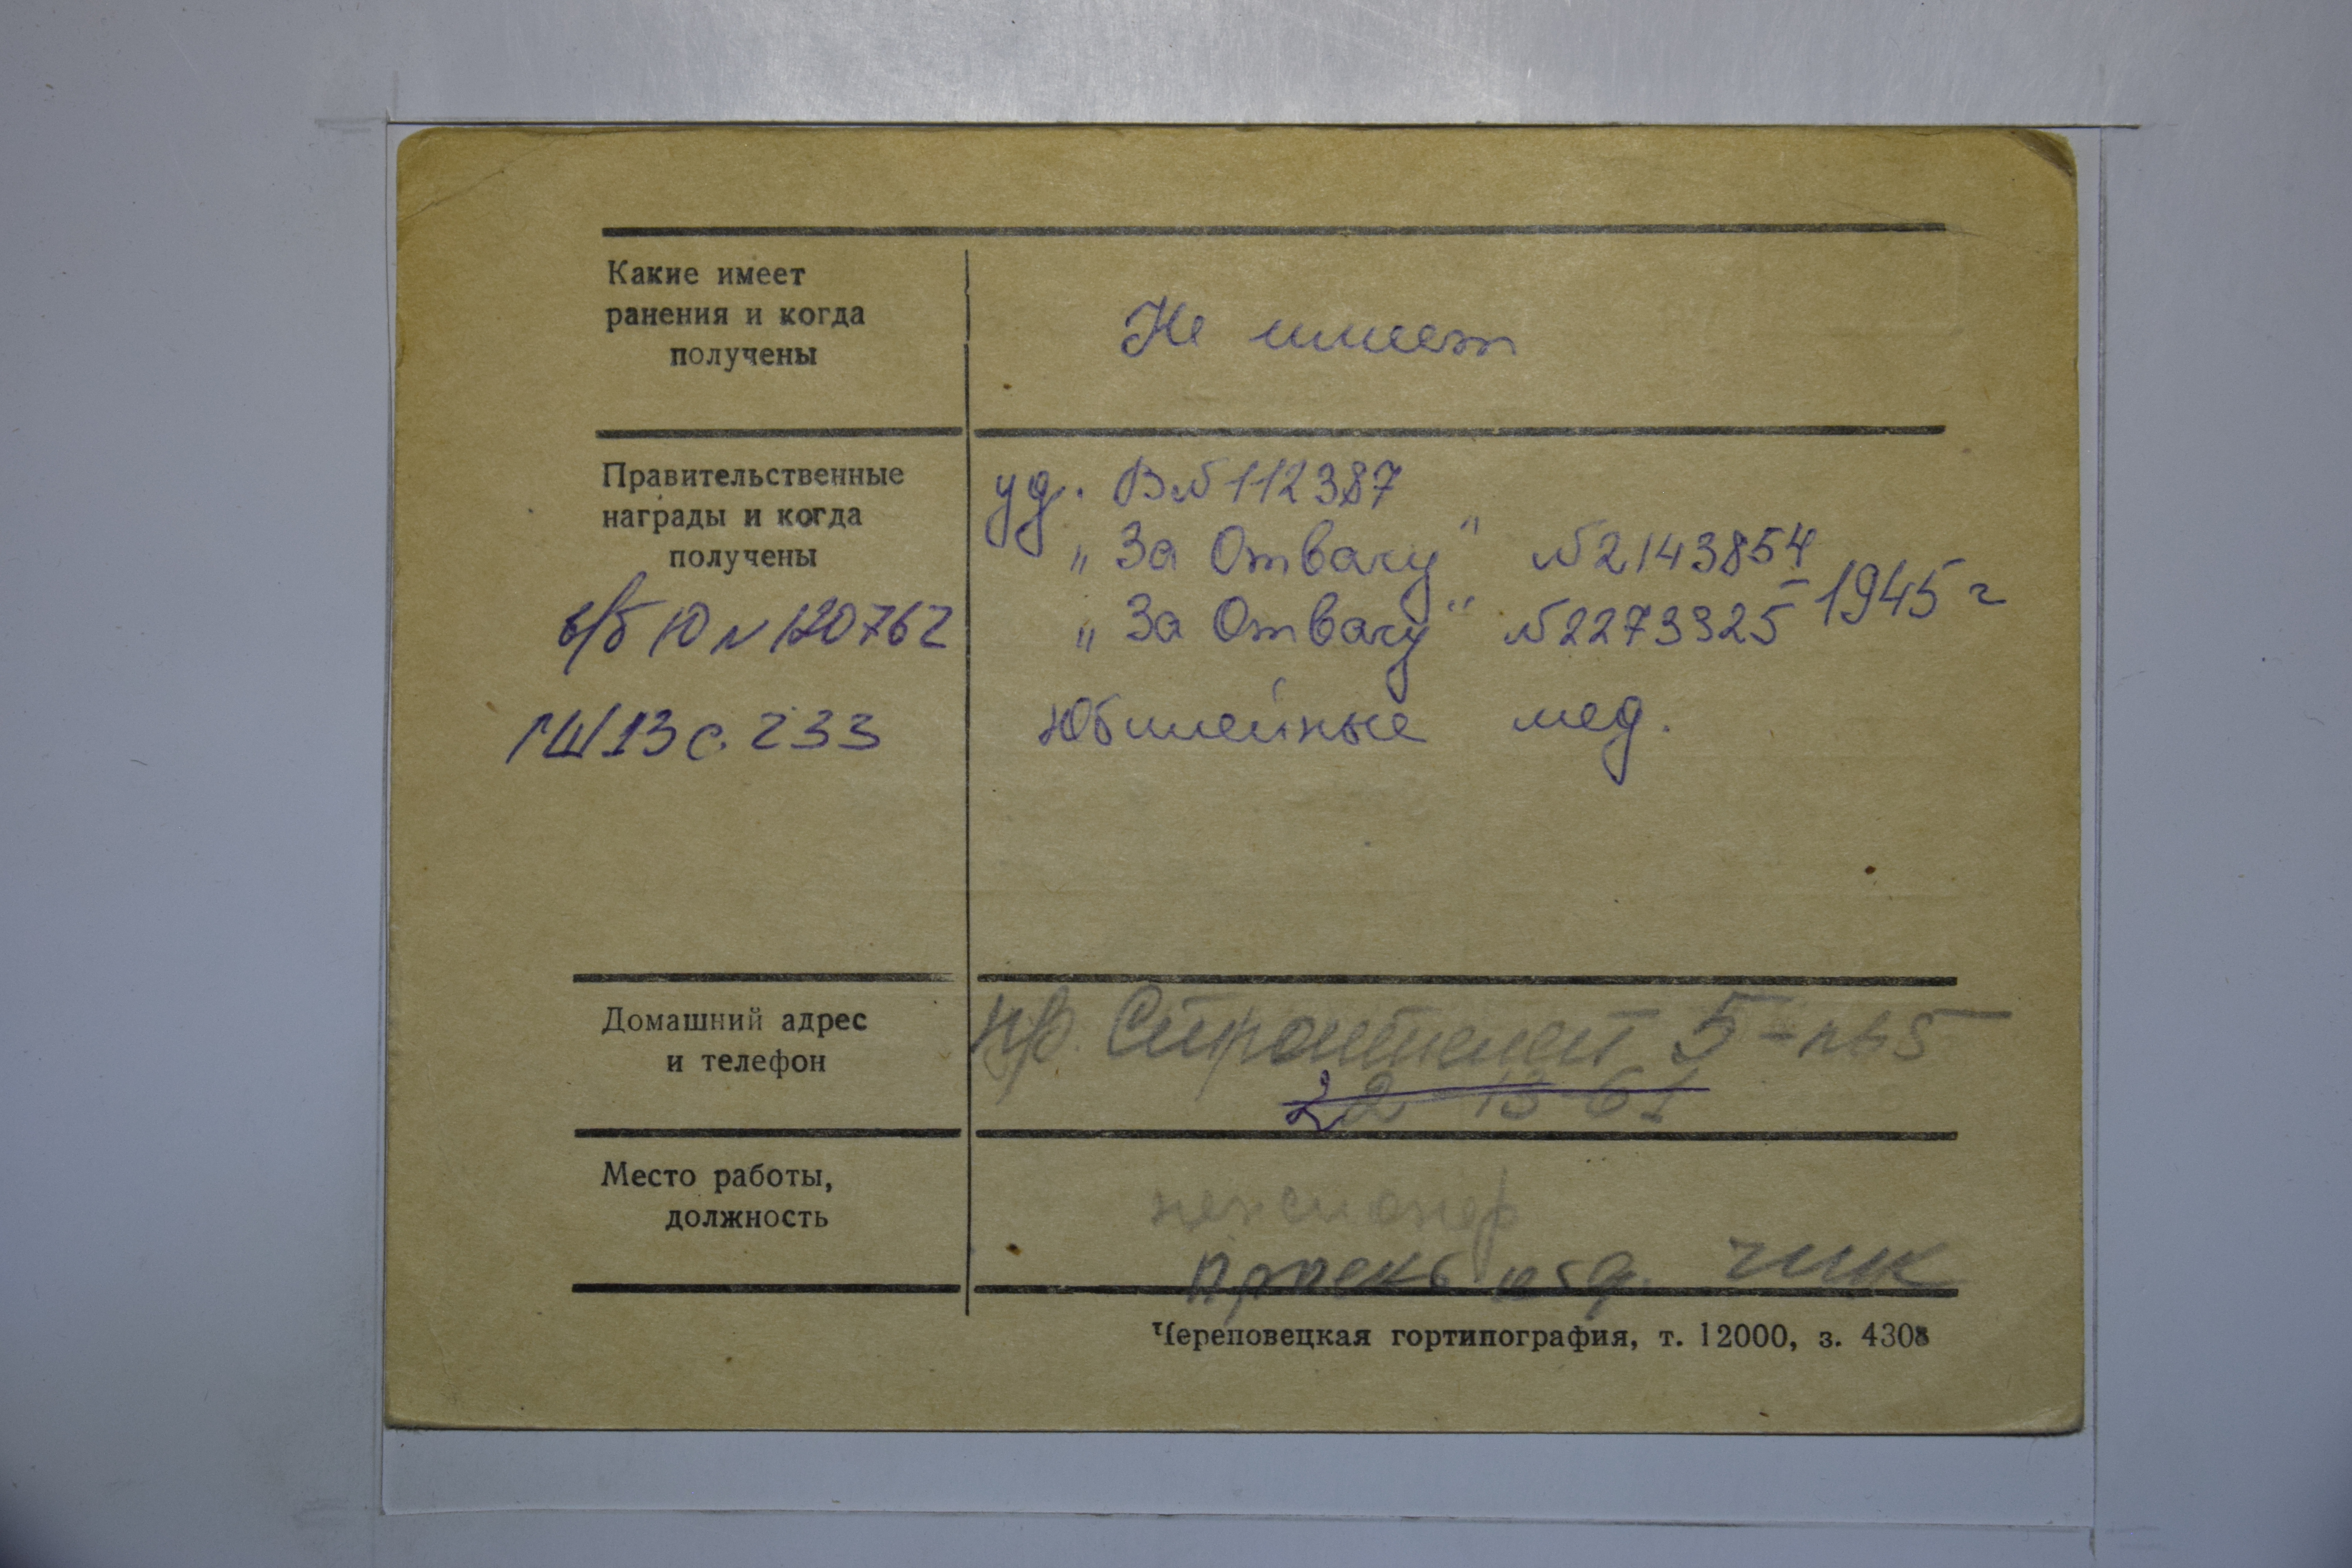 Какие имеет
ранения и когда
получены
Не имеет
Правительственные
награды и когда
получены
в/б Ю № 120762
ГШ 13 с. 233
уд. В№112387
„За Отвагу" №2143854
„За Отвагу" №2273325 - 1945 г
Юбилейные мед.
Домашний адрес
и телефон
пр. Строителей 5-
22-13-61
Место работы,
должность
пенсионер
проект отд.
Череповецкая гортипография, т. 12000, з. 4308